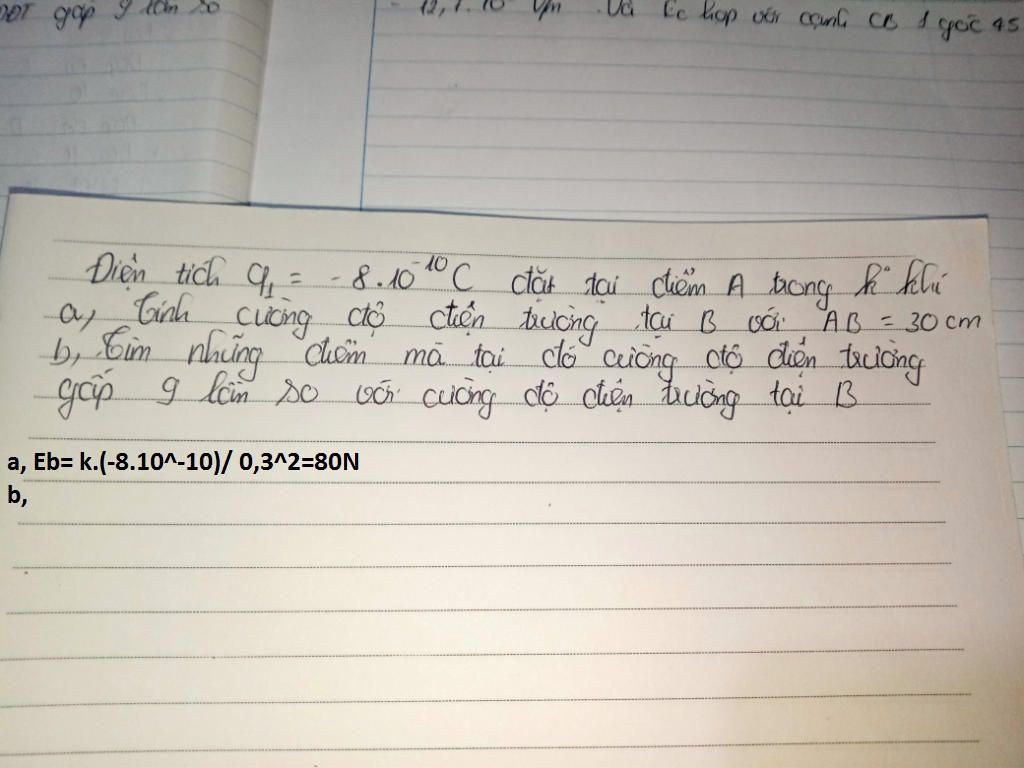 gấp 9 lần so
12,7.10 V/m . Và Ec hợp với cạnh CB 1 góc 45
Điện tích q₁ = -8.10⁻¹⁰C đặt tại điểm A trong k° khí
a, Tính cường độ điện trường tại B với AB = 30cm
b, Tìm những điểm mà tại đó cường độ điện trường
gấp 9 lần so với cường độ điện trường tại B
a, Eb= k.(-8.10^-10)/ 0,3^2=80N
b,